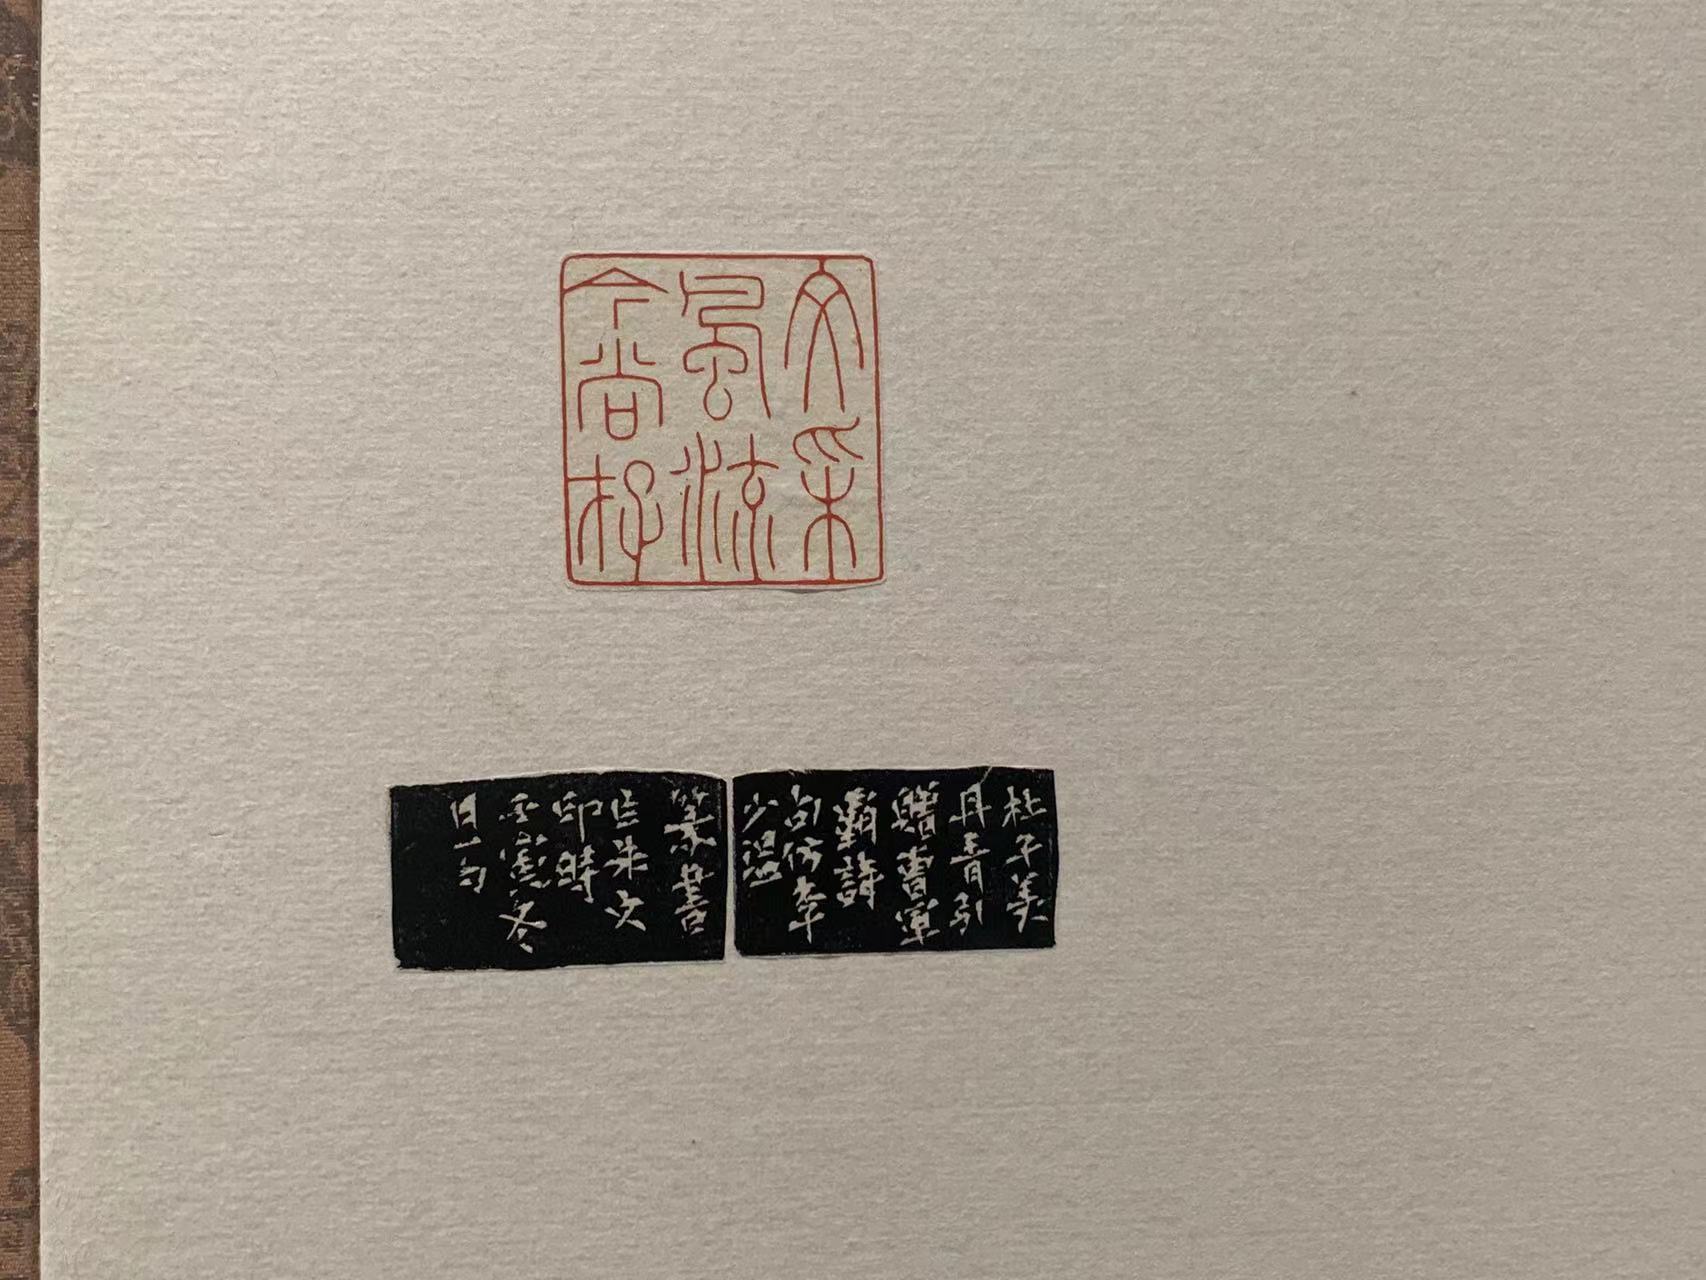 文采
風流
今尚存
杜子美
丹青引
贈曹軍
霸詩
句仿李
少溫
篆書
朱文
印時
冬
日一勺